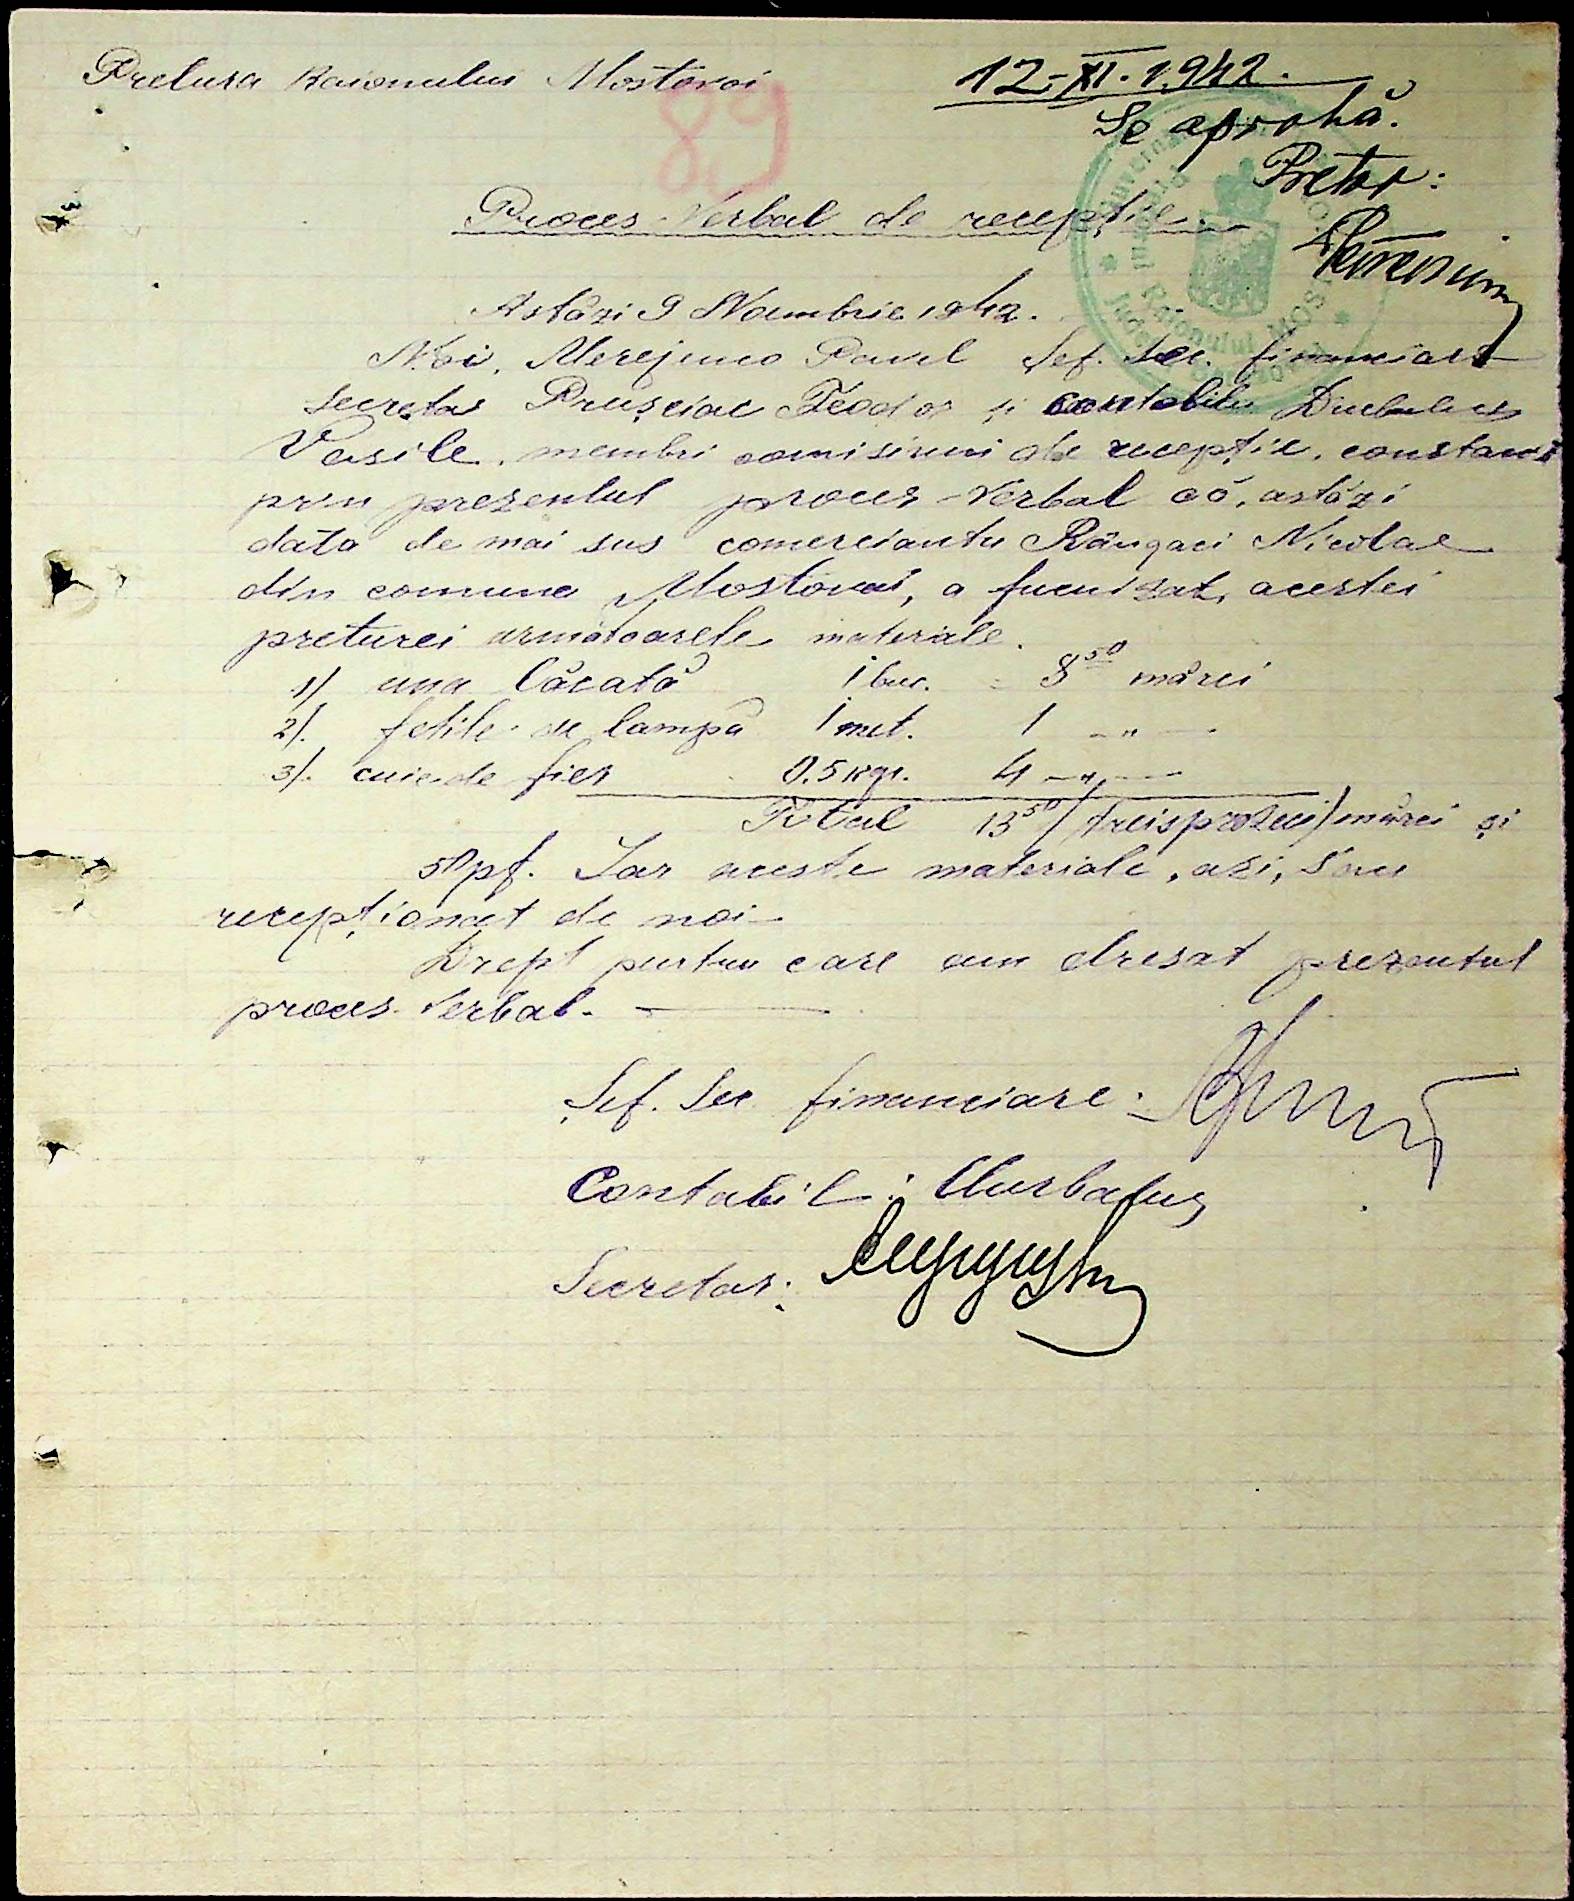 Pretura Raionului Mostovoi
12-XI.1942.
Se aprobă.
Pretor:
89
Proces-Verbal de recepție.
Astăzi 9 Noembrie 1942.
Noi, Merejuco Pavel Șef. Ser. financiare
secretar Prușciac Teodor și contabilu
Vasile, membri comisiuni de recepție, constatat
prin prezentul proces-Verbal că, astăzi
data de mai sus comerciantu Rângaci Nicolae
din comuna Mostovoi, a furnizat, acestei
preturei urmatoarele materiale.
1) una lăcată 1 buc. = 8 50 mărci
2). fetile de lampă 1 met. 1 -"-
3). cuie de fier 0.5 kgr. 4 -"-
Total 13 50 /treisprezeci/ mărci și
50 pf. Iar aceste materiale, azi, s'au
recepționat de noi-
Drept pentru care am dresat prezentul
proces-Verbal.
Șef. Ser financiare:
Contabil:
Secretar:
Raionului MOSTOVOI